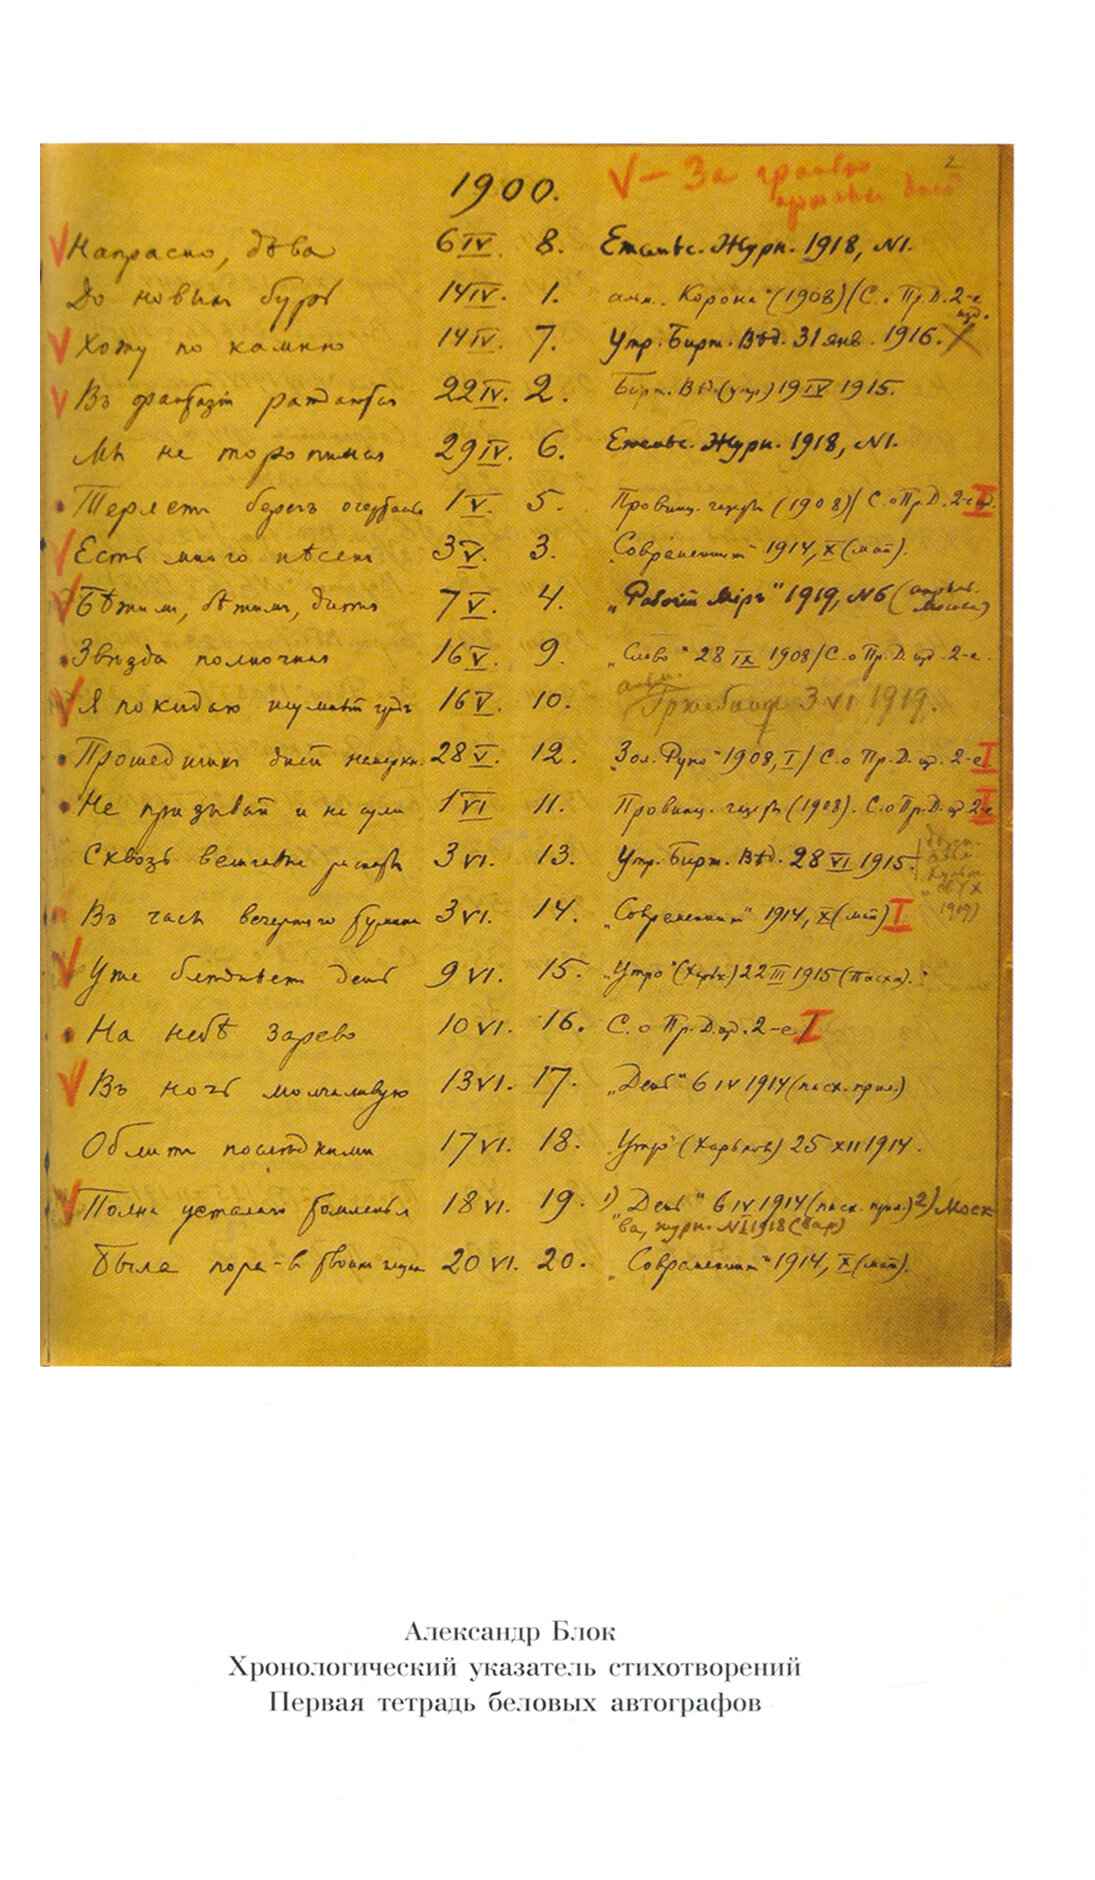 2
1900. V — За гранью
прошлых дней
Напрасно, дѣва 6 IV. 8. Ежемѣс. Журн. 1918, №1.
До новыхъ бурь 14 IV. 1. альм. „Корона" (1908) / С. о Пр. Д. 2-е изд.
Хожу по камню 14 IV. 7. Утр. Бирж. Вѣд. 31 янв. 1916.
Въ фантазіи рождаются 22 IV. 2. Бирж. Вѣд. (утр.) 19 IV 1915.
Мы не торопимся 29 IV. 6. Ежемѣс. Журн. 1918, №1.
Теряетъ берегъ очертанья 1 V. 5. Провинц. газеты (1908) / С. о Пр. Д. 2-е изд. I
Есть много пѣсенъ 3 V. 3. „Современникъ" 1914, X (май).
Бѣжимъ, бѣжимъ, дитя 7 V. 4. „Рабочій Міръ" 1919, №6 (Москва)
Звѣзда полночная 16 V. 9. „Слово" 28 IX 1908 / С. о Пр. Д. изд. 2-е.
Я покидаю шумный 16 V. 10. альм. Гржебина 3 VI 1919.
Прошедшихъ дней 28 V. 12. „Зол. Руно" 1908, I / С. о Пр. Д. изд. 2-е I
Не призывай и не сули 1 VI 11. Провинц. газеты (1908). С. о Пр. Д. изд 2-е I
Сквозь вешніе 3 VI. 13. Утр. Бирж. Вѣд. 28 VI 1915.
1919)
Въ часъ вечерняго тумана 3 VI. 14. „Современникъ" 1914, X (май) I
Уже блѣднѣетъ день 9 VI. 15. „Утро" (Харьк.) 22 III 1915 (Пасха).
На небѣ зарево 10 VI. 16. С. о Пр. Д. изд. 2-е I
Въ ночь молчаливую 13 VI. 17. „День" 6 IV 1914 (пасх. прил.)
Облиты послѣдними 17 VI. 18. „Утро" (Харьковъ) 25 XII 1914.
Полна усталаго томленья 18 VI. 19. 1) „День" 6 IV 1914 (пасх. прил.) 2) Моск-
ва, журн. №1 1918 (вар)
Была пора - в 20 VI. 20. „Современникъ" 1914, X (май).
Александр Блок
Хронологический указатель стихотворений
Первая тетрадь беловых автографов